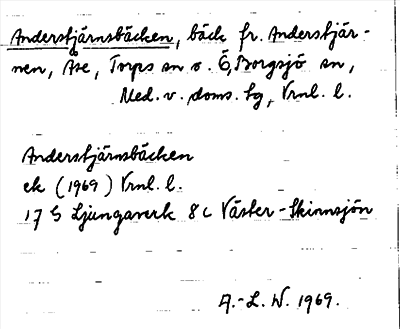 Anderstjärnsbäcken, bäck fr. Anderstjär-
nen, Åse, Torps sn o. Ö, Borgsjö sn,
Med. v. doms. hg, Vrnl. l.
Anderstjärnsbäcken
ek (1969) Vrnl. l.
17 G Ljungaverk 8 c Väster-Skinnsjön
A.-L. W. 1969.